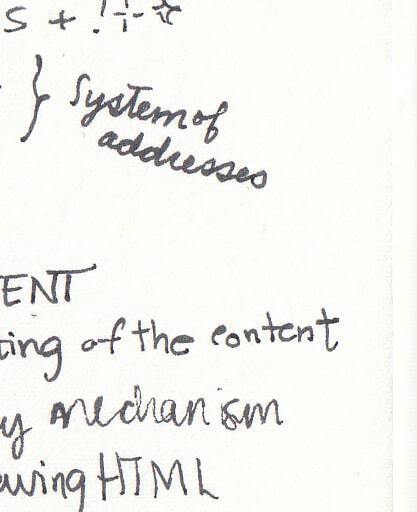 S + ! ÷ ☆
} System of
addresses
ENT
ting of the content
y mechanism
wing HTML